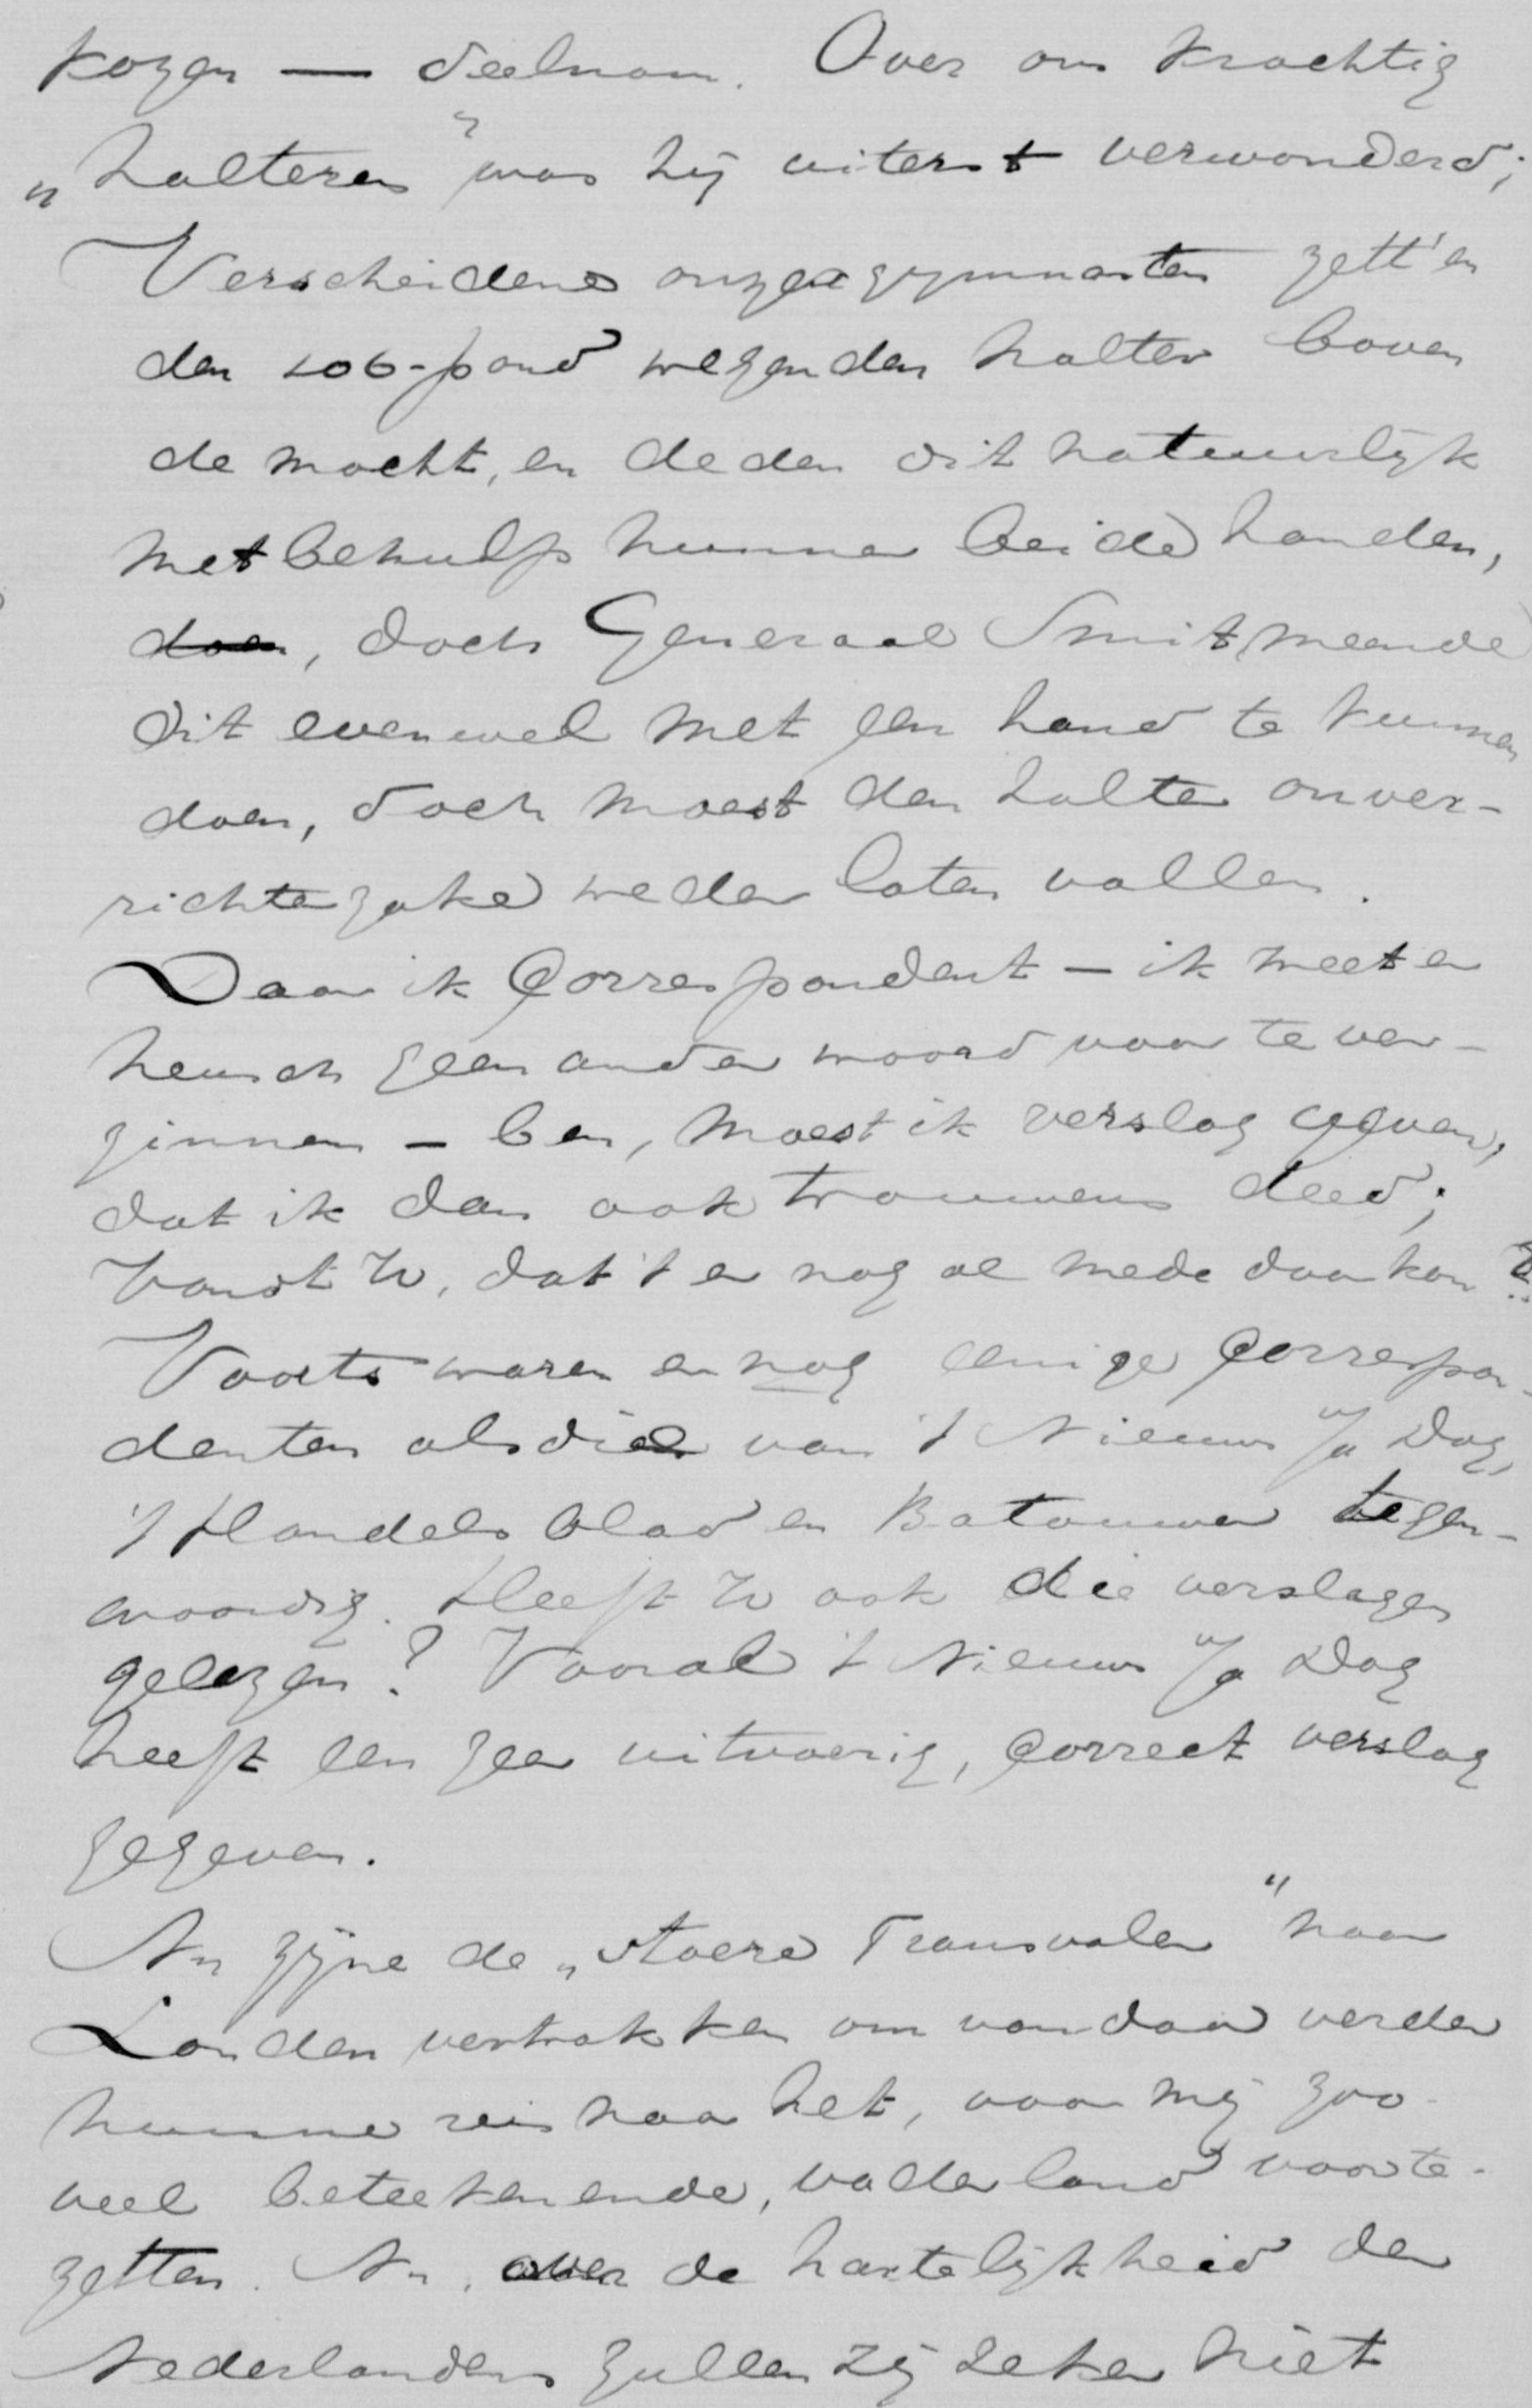 kozen — deelnam. Over ons krachtig
„halteren" was hij uiterst verwonderd;
Verscheidene onzer gymnasten zett'en
den 106-pond wegenden halter boven
de macht, en deden dit natuurlijk
met behulp hunner beide handen,
doen, doch Generaal Smit meende
dit evenwel met een hand te kunnen
doen, doch moest den halter onver-
richter zake weder laten vallen.
Daar ik Correspondent — ik weet er
heusch geen ander woord voor te ver-
zinnen — ben, moest ik verslag geven,
dat ik dan ook trouwens deed;
Vondt U, dat 't er nog al mede door kon?
Voorts waren er nog eenige Correspon-
denten als die van 't Nieuws v/d Dag,
't Handelsblad en Batouwer tegen-
woordig. Heeft U ook die verslagen
gelezen? Vooral 't Nieuws v/d Dag
heeft een zeer uitvoerig, correct verslag
gegeven.
Nu zijne de „stoere Transvalen" naar
Londen vertrokken om van daar verder
hunne reis naar het, voor mij zoo-
veel beteekenende, vaderland voort te-
zetten. Nu, over de hartelijkheid der
Nederlanders zullen zij zeker niet